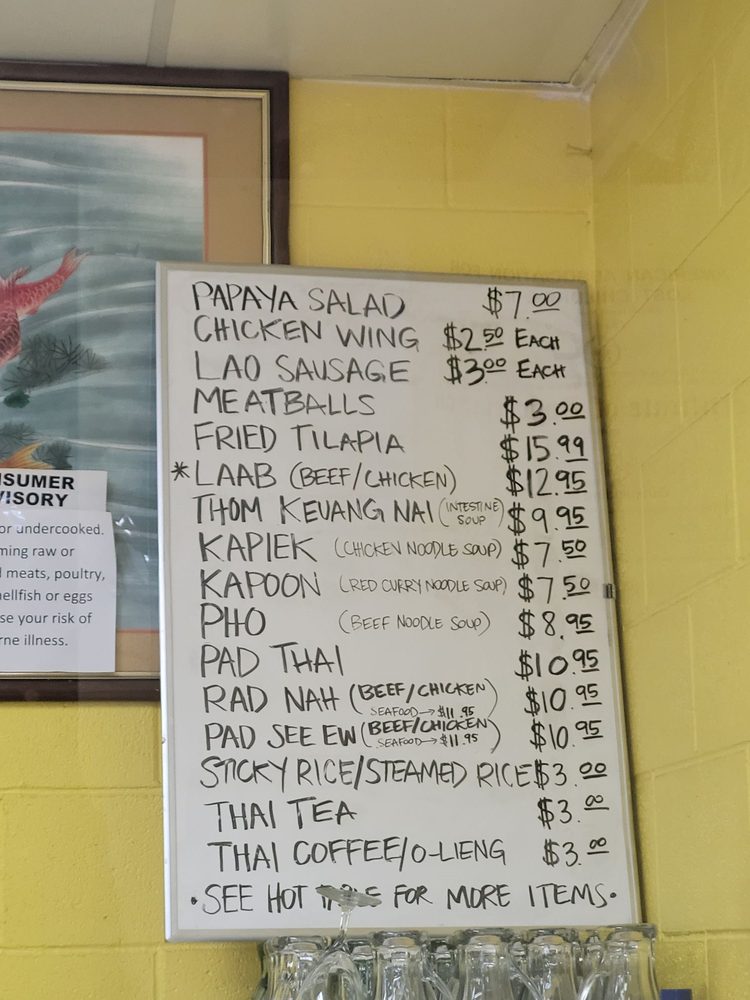 PAPAYA SALAD $7.00
CHICKEN WING $2.50 EACH
LAO SAUSAGE $3.00 EACH
MEATBALLS $3.00
FRIED TILAPIA $15.99
*LAAB (BEEF/CHICKEN) $12.95
THOM KEUANG NAI (INTESTINE SOUP) $9.95
KAPIEK (CHICKEN NOODLE SOUP) $7.50
KAPOON (RED CURRY NOODLE SOUP) $7.50
PHO (BEEF NOODLE SOUP) $8.95
PAD THAI $10.95
RAD NAH (BEEF/CHICKEN) $10.95
SEAFOOD→$11.95
PAD SEE EW (BEEF/CHICKEN) $10.95
SEAFOOD→$11.95
STICKY RICE/STEAMED RICE $3.00
THAI TEA $3.00
THAI COFFEE/O-LIENG $3.00
•SEE HOT TABLE FOR MORE ITEMS•
NSUMER
VISORY
or undercooked.
ming raw or
meats, poultry,
hellfish or eggs
se your risk of
rne illness.